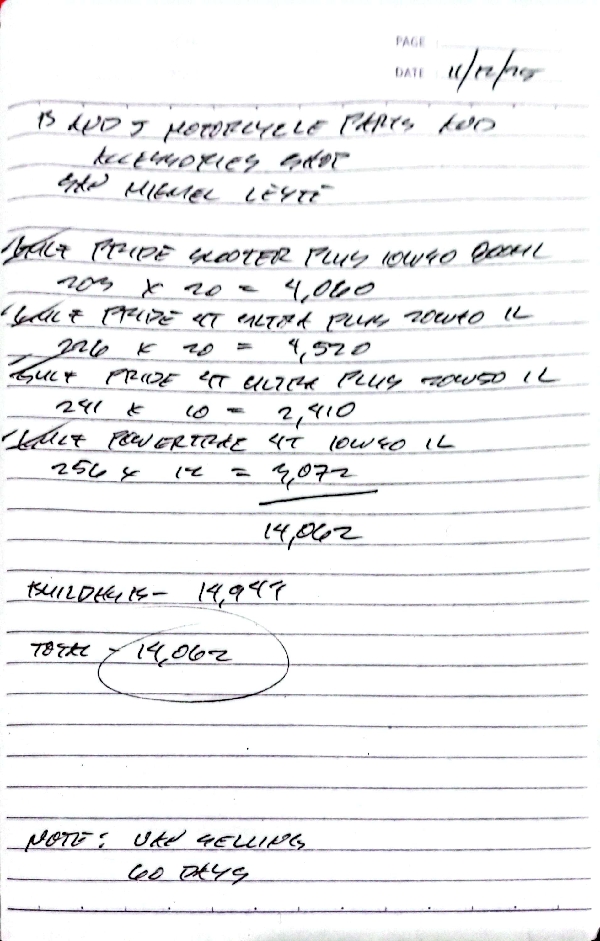 PAGE
DATE 11/12/25
B AND J MOTORCYCLE PARTS AND
ACCESSORIES SHOP
SAN MIGUEL LEYTE
GULF PRIDE SCOOTER PLUS 10W40 800ML
203 X 20 = 4,060
GULF PRIDE 4T ULTRA PLUS 20W40 1L
226 X 20 = 4,520
GULF PRIDE 4T ULTRA PLUS 20W50 1L
241 X 10 = 2,410
GULF POWERTRAC 4T 10W40 1L
256 X 12 = 3,072
14,062
14,947
TOTAL - 14,062
NOTE: VAN SELLING
60 DAYS